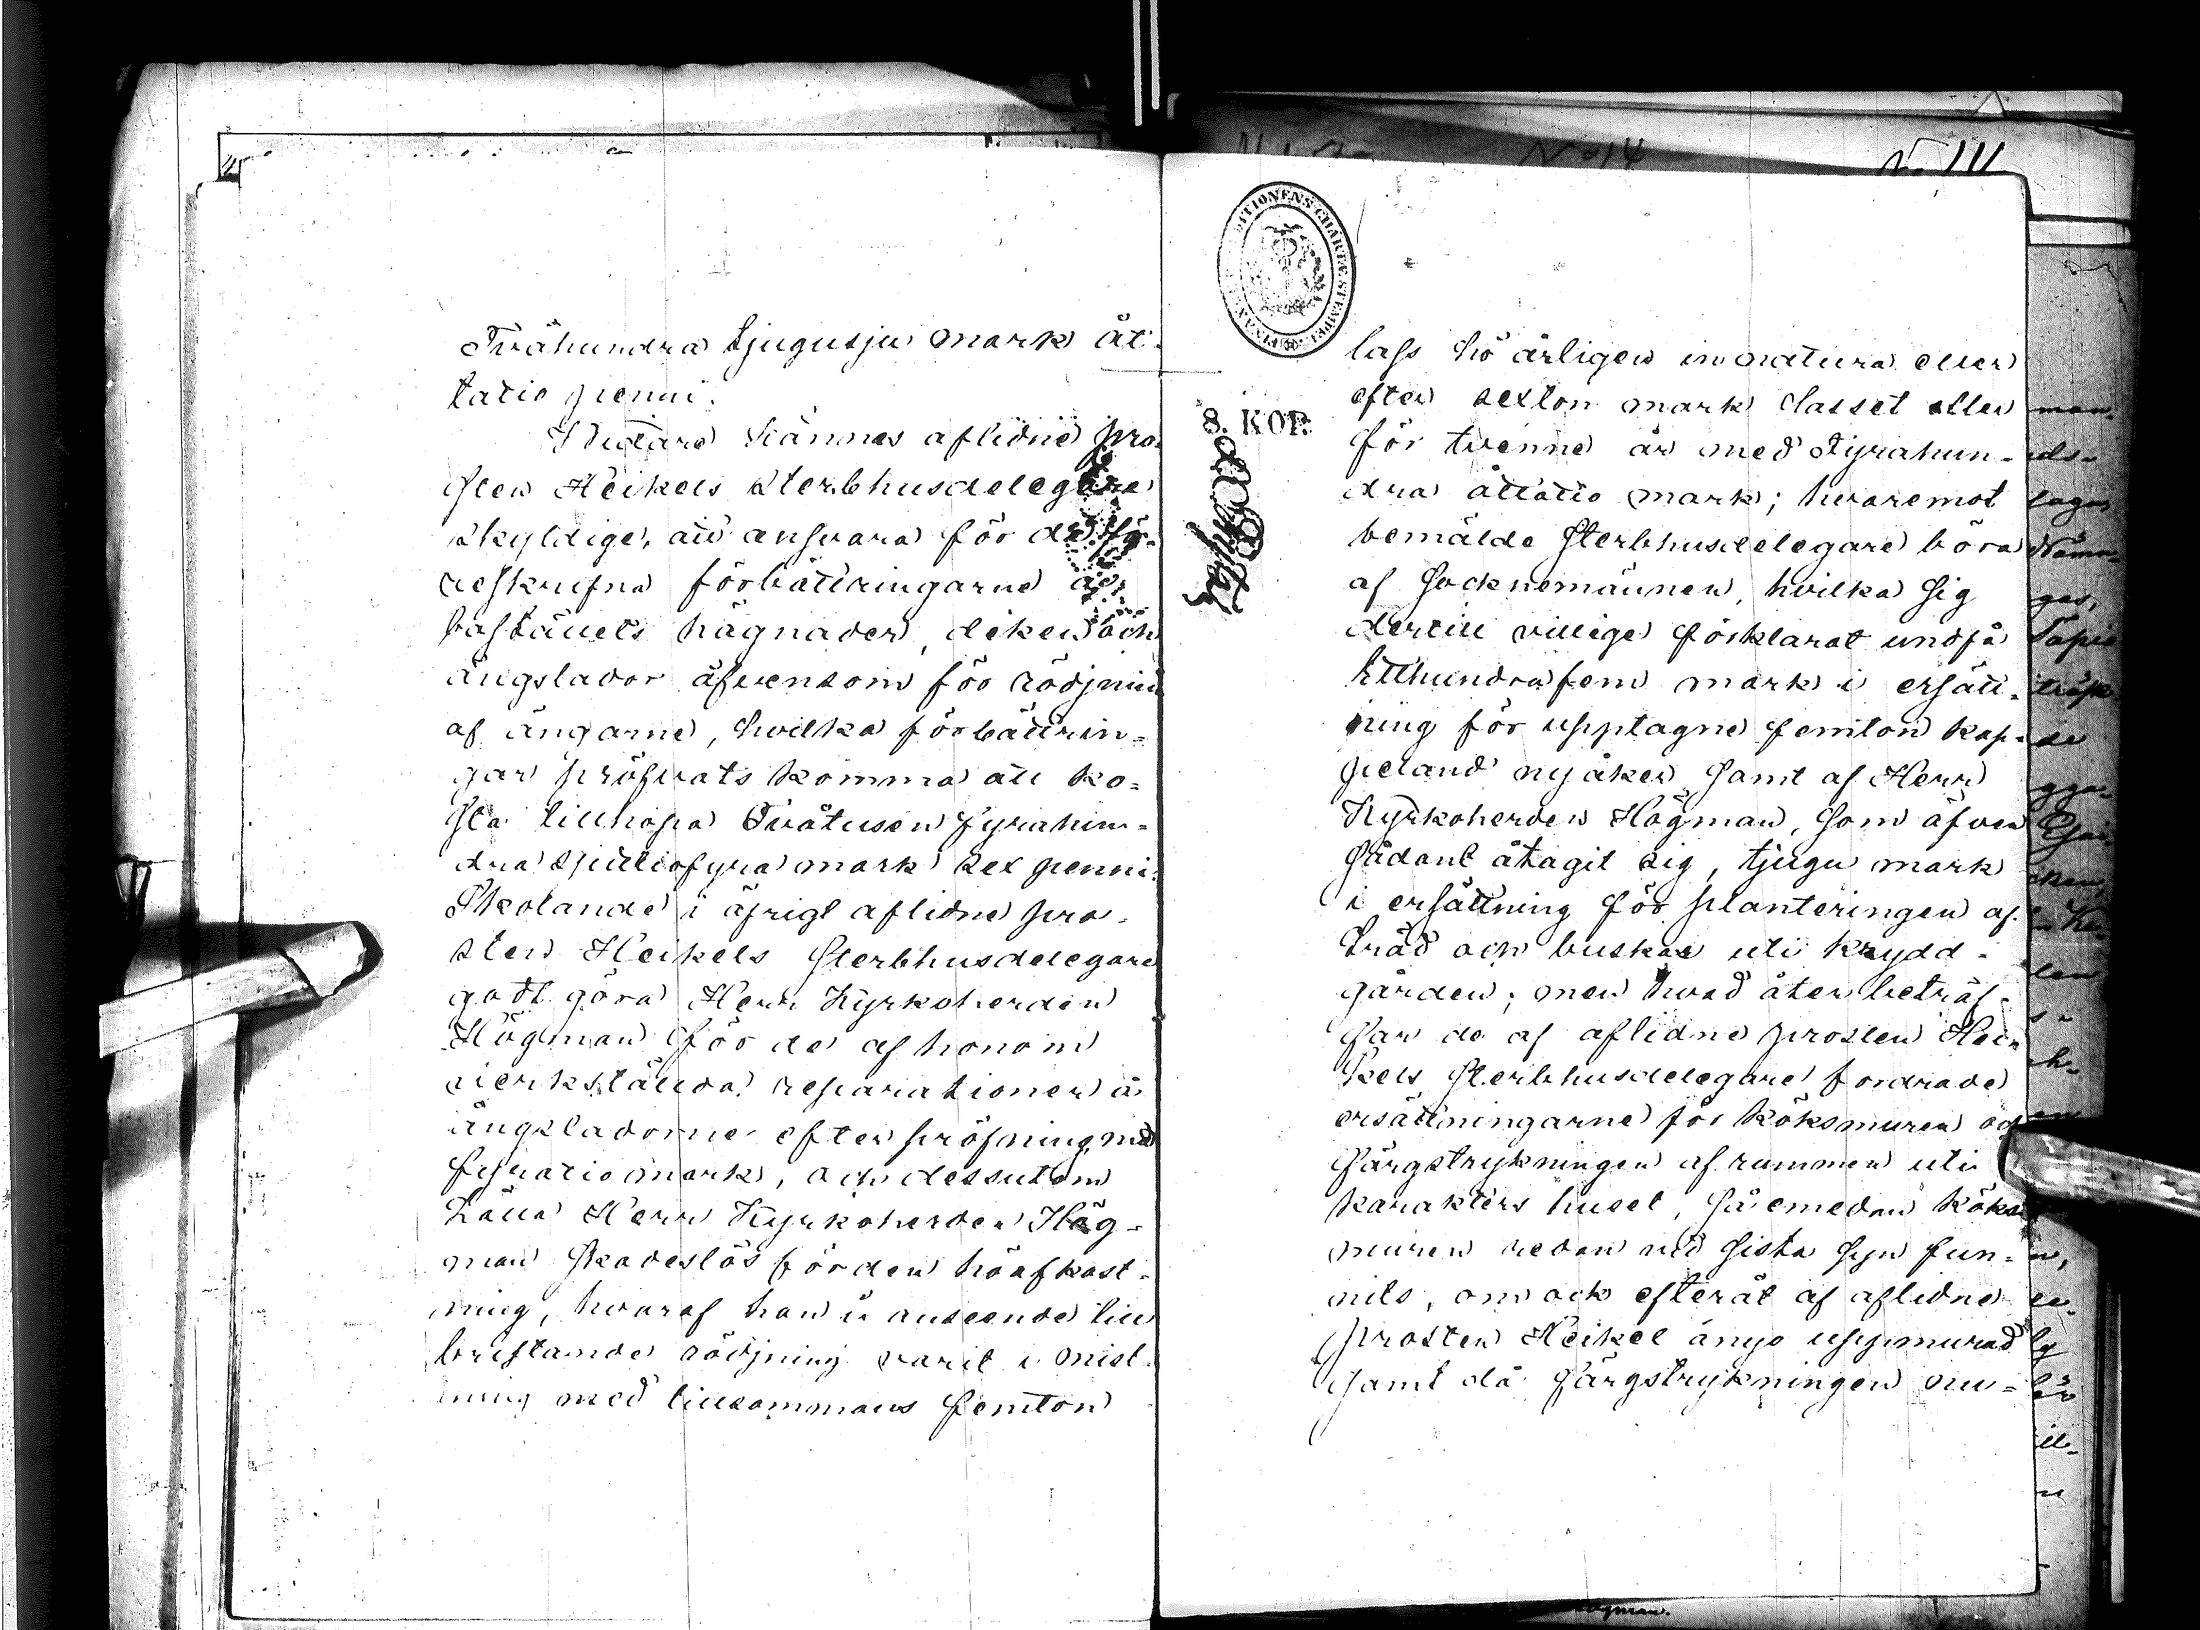 Tvåhundra tjugusju mark åt-
tatio penni.
Vidare kännes aflidne pro-
sten Heikels sterbhusdelegare
skyldige, att ansvara för de fö-
reskrifna förbättringarne af
boställets hägnader, diken och
ängslador äfvensom för rödjning
af ängarne, hvilka förbättrin-
gar pröfvats komma att ko-
sta tillhopa Tvåtusen fyrahun-
dra sjuttiofyra mark sex penni.
Skolande i öfrigt aflidne pro-
sten Heikels sterbhusdelegare
godtgöra Herr Kyrkoherden
Högman för de af honom
verkstälda reparationer å
ängsladorne efter pröfning med
fyratio mark, och dessutom
hålla Herr Kyrkoherden Hög-
man skadeslös för den höafkast-
ning, hvaraf han i anseende till
bristande rödjning varit i mist-
ning med tillsammans femton
No 14
N. 111
EXPEDITIONENS CHARTÆ STEMPEL
8. KOP.
lass hö årligen in natura eller
efter sexton mark lasset eller
för tvenne år med Fyrahun-
dra åttatio mark; hvaremot
bemälde sterbhusdelegare böra
af socknemännen, hvilka sig
dertill villige förklarat undfå
Etthundrafem mark i ersätt-
ning för upptagne femton kap-
peland nyåker samt af Herr
Kyrkoherden Högman, som äfven
sådant åtagit sig, tjugu mark
i ersättning för planteringen af
träd och buskar uti krydd-
gården; men hvad åter beträf-
far de af aflidne prosten Hei-
kels sterbhusdelegare fordrade
ersättningarne för köksmuren och
färgstrykningen af rummen uti
karaktershuset, så emedan köks
muren redan vid sista syn fun-
nits, om ock efteråt af aflidne
prosten Heikel ånyo uppmurad
samt då färgstrykningen nu-